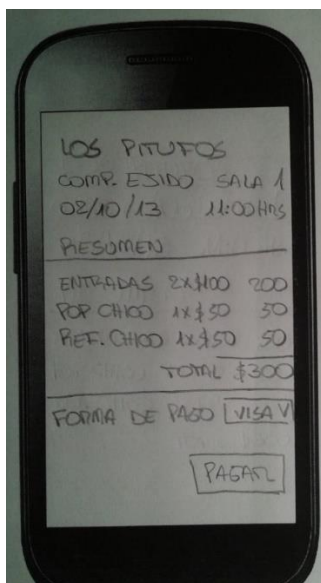 LOS PITUFOS
COMP. EJIDO SALA 1
02/10/13 11:00 HRS
RESUMEN
ENTRADAS 2x$100 200
POP CHICO 1x$50 50
REF. CHICO 1x$50 50
TOTAL $300
FORMA DE PAGO VISA V
PAGAR